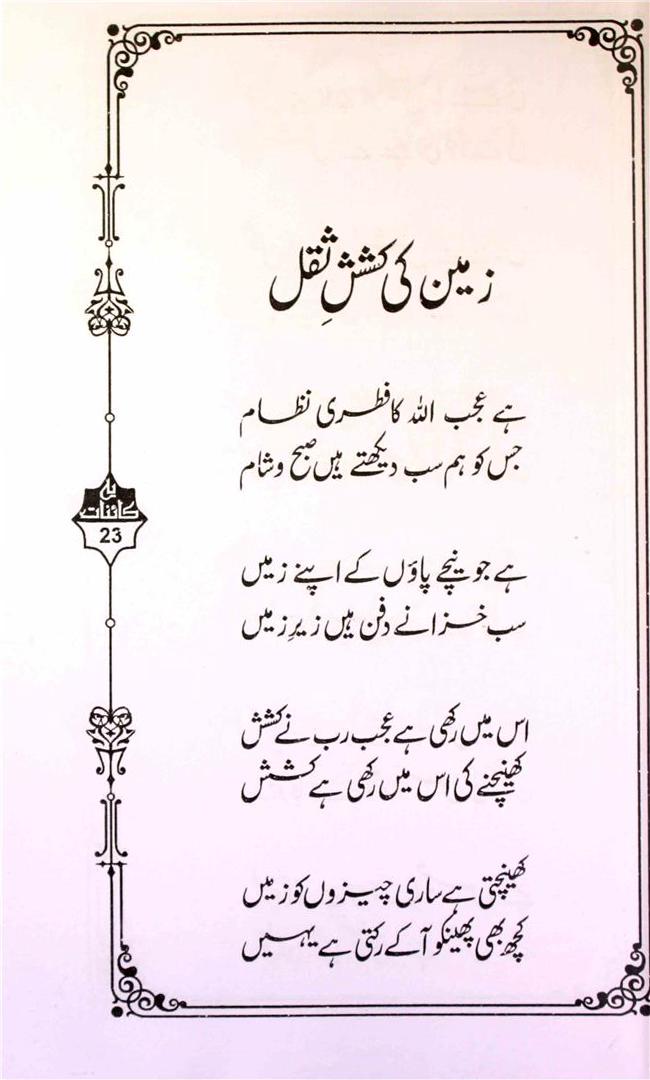 زمین کی کششِ ثقل
ہے عجب اللہ کا فطری نظام
جس کو ہم سب دیکھتے ہیں صبح و شام
ہے جو نیچے پاؤں کے اپنے زمیں
سب خزانے دفن ہیں زیرِ زمیں
اس میں رکھی ہے عجب رب نے کشش
کھینچنے کی اس میں رکھی ہے کشش
کھینچتی ہے ساری چیزوں کو زمیں
کچھ بھی پھینکو آ کے رکتی ہے یہیں
یہ
کائنات
23